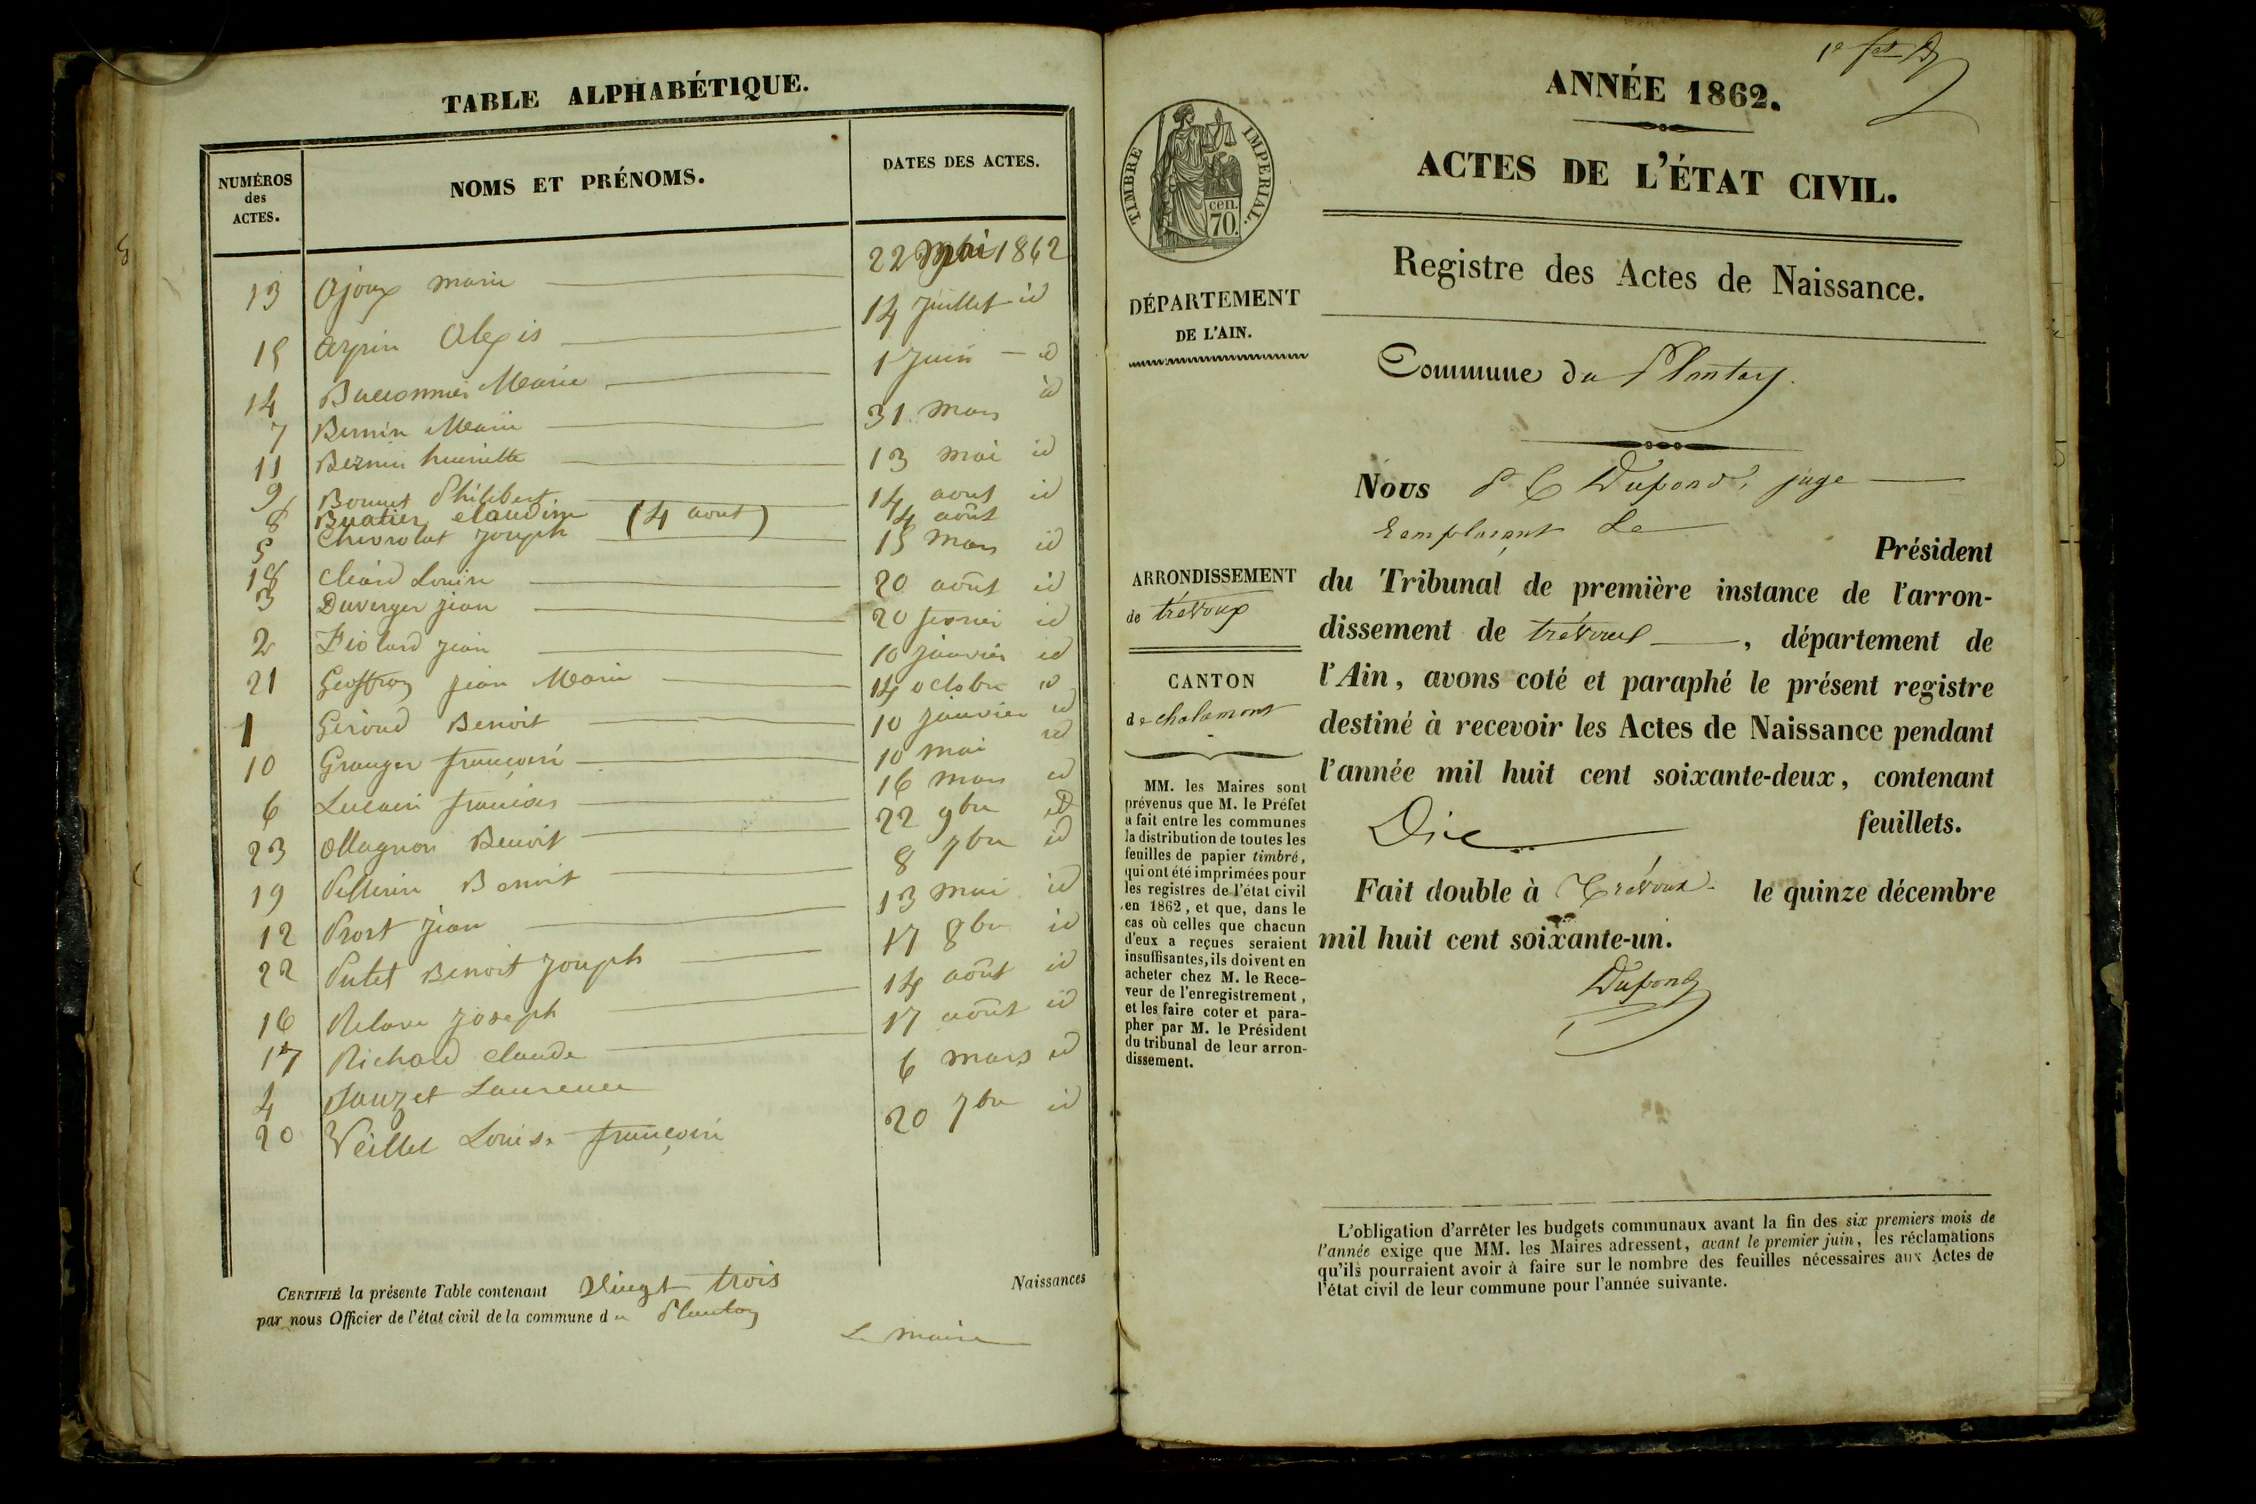 TABLE ALPHABÉTIQUE.
NUMÉROS
des
ACTES.
NOMS ET PRÉNOMS.
DATES DES ACTES.
13 Ajoux marie 22 mai 1862
15 Alexis 14 juillet id
14 Marie 1 juin id
7 Bernin Marie 31 mars id
11 Bernin henriette 13 mai id
9 Bonnet Philibert 14 aout id
8 Buatier claudine (4 aout) 4 août
5 Chevrolat joseph 15 mars id
18 Louise 20 août id
3 Duverger jean 20 fevrier id
2 Fiolard jean 10 janvier id
21 Geoffroy jean Marie 14 octobre id
1 Giroud Benoit 10 janvier id
10 Granger françois 10 mai id
6 françois 16 mars id
23 Magnon Benoit 22 9bre id
19 Pellerin Benoit 8 7bre id
12 Prost jean 13 mai id
22 Putet Benoit joseph 17 8bre id
16 Relave joseph 14 août id
17 Richard claude 17 août id
4 Sauzet Laurence 6 mars id
20 Veillet Louise françoise 20 7bre id
CERTIFIÉ la présente Table contenant Vingt trois Naissances
par nous Officier de l'état civil de la commune du Plantay
Le maire
ANNÉE 1862.
ACTES DE L'ÉTAT CIVIL.
TIMBRE IMPERIAL.
cen.
70.
Registre des Actes de Naissance.
DÉPARTEMENT
DE L'AIN.
Commune du Plantay.
Nous Dupond, juge
Remplaçant Le
Président
du Tribunal de première instance de l'arron-
dissement de trévoux, département de
l'Ain, avons coté et paraphé le présent registre
destiné à recevoir les Actes de Naissance pendant
l'année mil huit cent soixante-deux, contenant
Dix feuillets.
Fait double à Trévoux le quinze décembre
mil huit cent soixante-un.
Dupond
ARRONDISSEMENT
de trévoux
CANTON
de chalamont
MM. les Maires sont
prévenus que M. le Préfet
a fait entre les communes
la distribution de toutes les
feuilles de papier timbré,
qui ont été imprimées pour
les registres de l'état civil
en 1862, et que, dans le
cas où celles que chacun
d'eux a reçues seraient
insuffisantes, ils doivent en
acheter chez M. le Rece-
veur de l'enregistrement,
et les faire coter et para-
pher par M. le Président
du tribunal de leur arron-
dissement.
L'obligation d'arrêter les budgets communaux avant la fin des six premiers mois de
l'année exige que MM. les Maires adressent, avant le premier juin, les réclamations
qu'ils pourraient avoir à faire sur le nombre des feuilles nécessaires aux Actes de
l'état civil de leur commune pour l'année suivante.